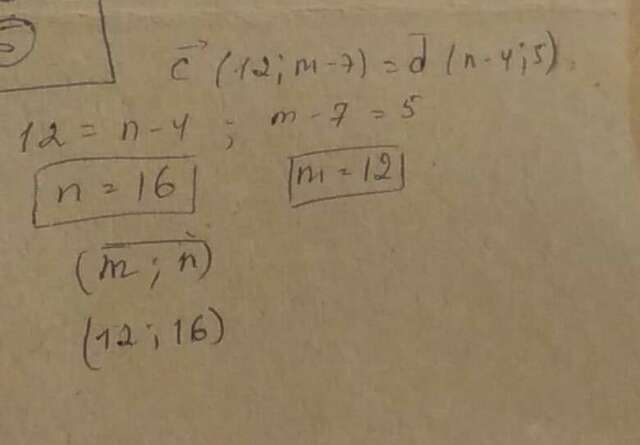 5
c⃗ (12; m-7) = d⃗ (n-4; 5).
12 = n-4 ; m-7 = 5
n = 16 m = 12
(m ; n)
(12 ; 16)